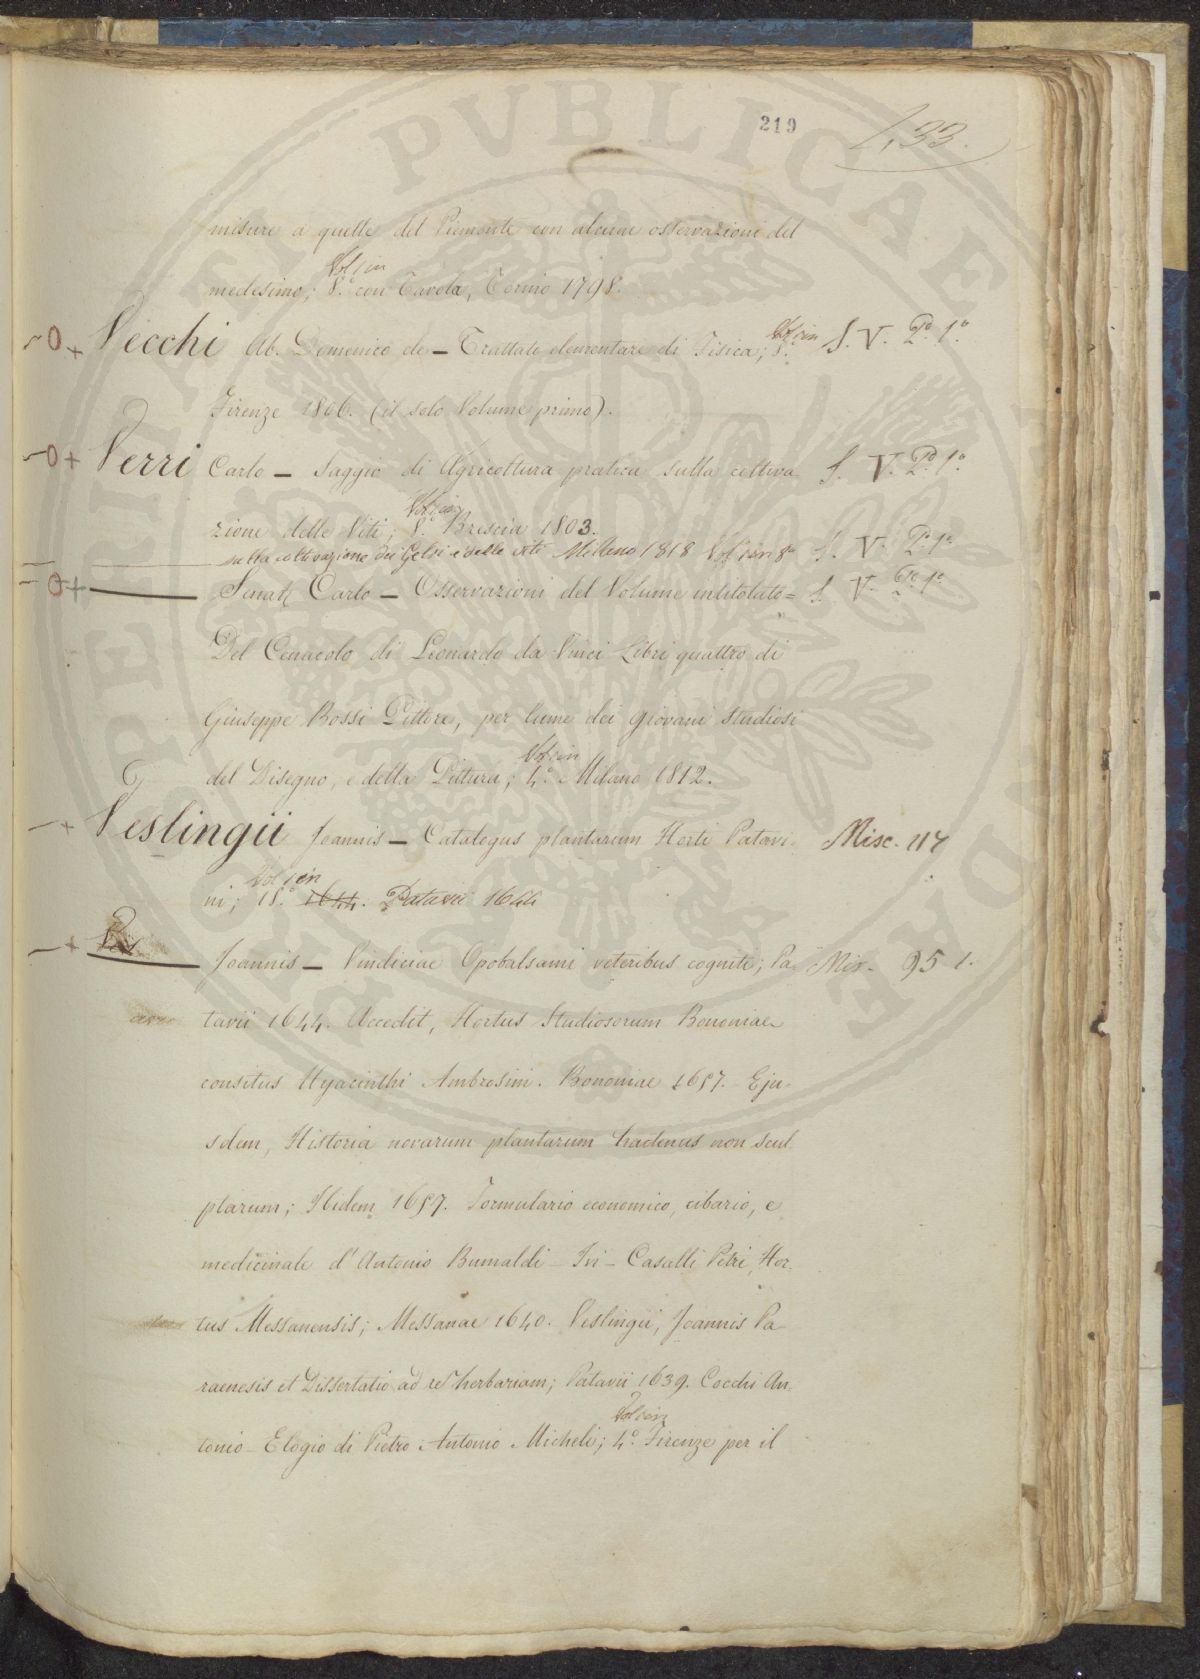 219
433.
misure a quelle del Piemonte con alcune osservazioni del
Vol. in
medesimo; 8.º con Tavola, Torino 1798.
Vecchi Ab. Domenico de — Trattato elementare di Fisica; Vol. in 8.º S. V. Pº 1º
Firenze 1806. (il solo Volume primo).
Verri Carlo — Saggio di Agricoltura pratica sulla coltiva S. V. Pº 1º
Vol. in
zione delle Viti; 8.º Brescia 1803.
sulla coltivazione dei Gelsi e delle viti Milano 1818 Vol. in 8º S. V. Pº 1º
Senat. Carlo — Osservazioni del Volume intitolato = S. V. Pº 1º
Del Cenacolo di Leonardo da Vinci Libri quattro di
Giuseppe Bossi Pittore, per lume dei giovani studiosi
Vol in
del Disegno, e della Pittura; 4.º Milano 1812.
Veslingii Joannis — Catalogus plantarum Horti Patavi- Misc. 117
Vol in
ni; 18.º 1644. Patavii 1644
Joannis — Vindiciae Opobalsami veteribus cogniti; Pa- Mis. 95 1.
tavii 1644. Accedit, Hortus Studiosorum Bononiae
consitus Hyacinthi Ambrosini. Bononiae 1657. Eju-
sdem, Historia novarum plantarum hactenus non scul-
ptarum; Ibidem 1657. Formulario economico, cibario, e
medicinale d'Antonio Bumaldi — In — Casalli Petri, Hor-
tus Messanensis; Messanae 1640. Veslingii, Joannis Pa-
raenesis et Dissertatio ad rem herbariam; Patavii 1639. Cocchi An-
Vol in
tonio — Elogio di Pietro Antonio Micheli; 4.º Firenze per il